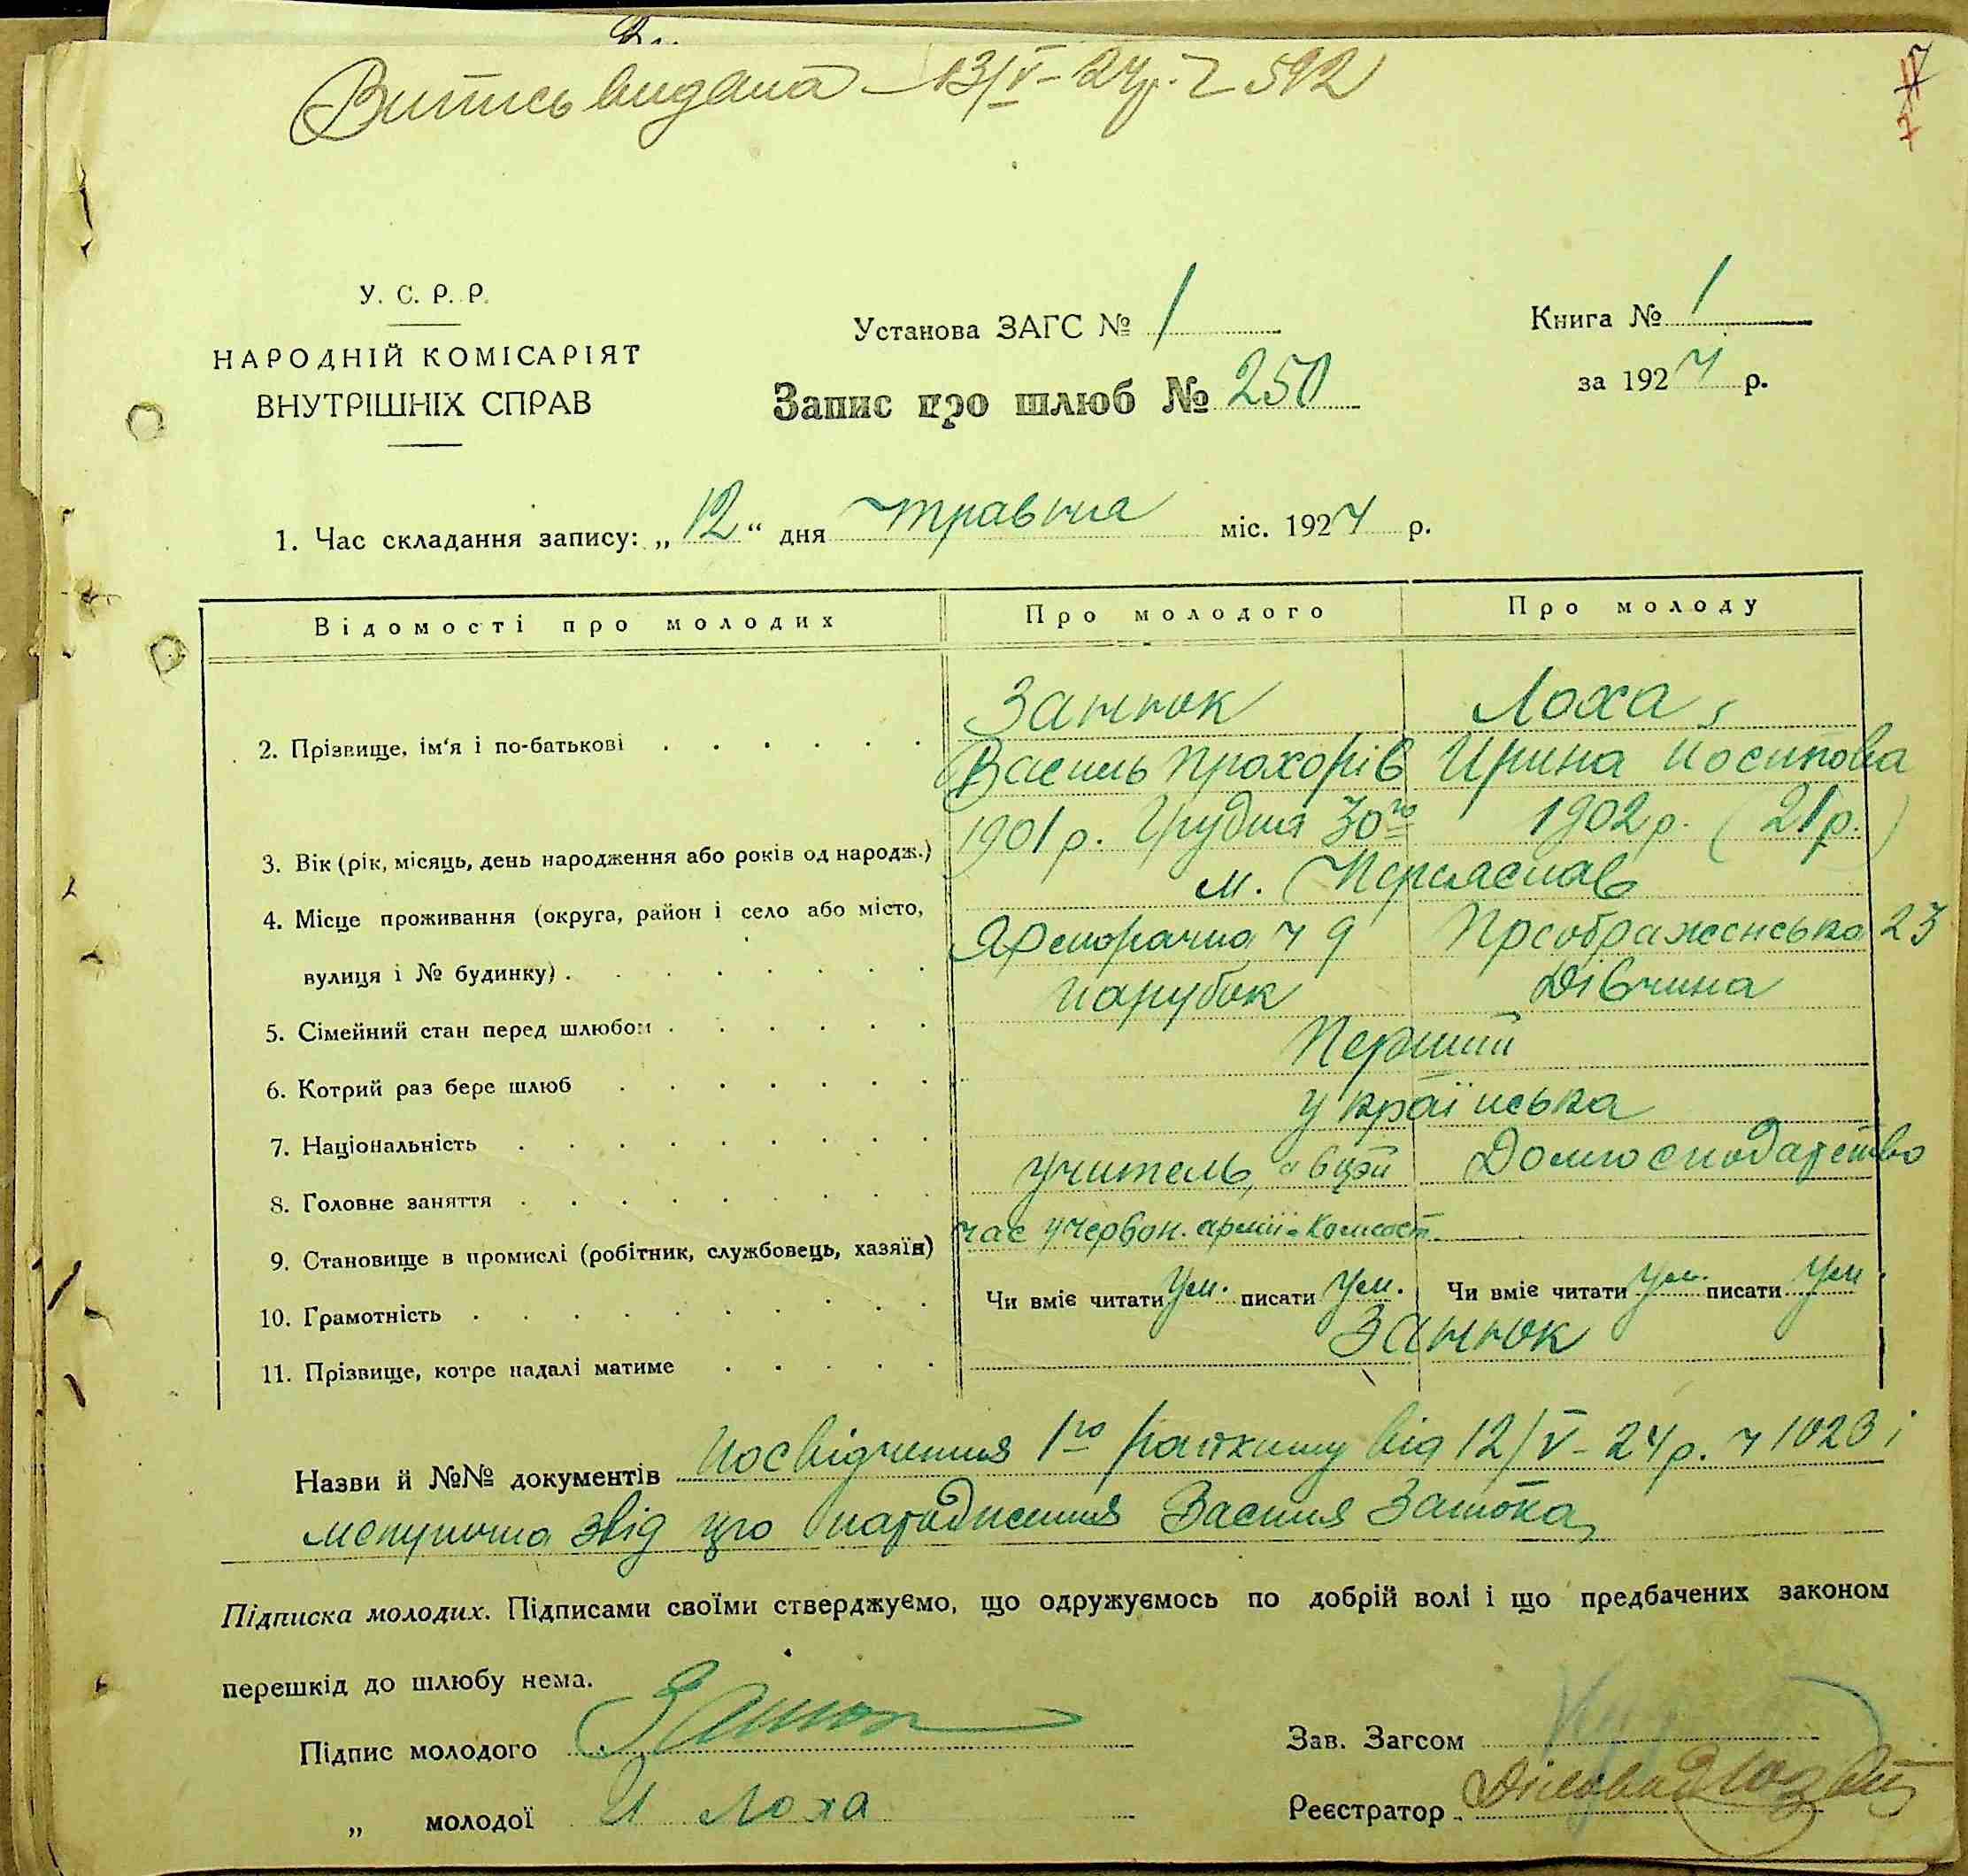 Витись видана 13/V-24р. 592
У. С. Р. Р.
НАРОДНІЙ КОМІСАРІЯТ
ВНУТРІШНІХ СПРАВ
Установа ЗАГС № 1
Запис про шлюб № 250
Книга № 1
за 1924 р.
1. Час складання запису: „12“ дня травня міс. 1924 р.
Відомості про молодих Про молодого Про молоду
2. Прізвище, ім'я і по-батькові
Занюк Лоха
Василь Прохорів Ирина Йосипова
3. Вік (рік, місяць, день народження або років од народж.) 1901 р. Грудня 30го 1902 р. (21 р.)
4. Місце проживання (округа, район і село або місто, м. Переяслав
вулиця і № будинку) Ярморачна ч 9 Преображенська 23
5. Сімейний стан перед шлюбом парубок Дівчина
6. Котрий раз бере шлюб Перший
7. Національність українська
8. Головне заняття учитель, в цей Домгосподарство
9. Становище в промислі (робітник, службовець, хазяїн) час у червон. армії
10. Грамотність Чи вміє читати Ум. писати Ум. Чи вміє читати Ум. писати Ум
11. Прізвище, котре надалі матиме Занюк
Назви й №№ документів Посвідчення 1го від 12/V-24р. ч 1023 і
звід про народження Василя Занюка
Підписка молодих. Підписами своїми стверджуємо, що одружуємось по добрій волі і що предбачених законом
перешкід до шлюбу нема.
Підпис молодого Занюк
Зав. Загсом
„ молодої И Лоха
Реєстратор